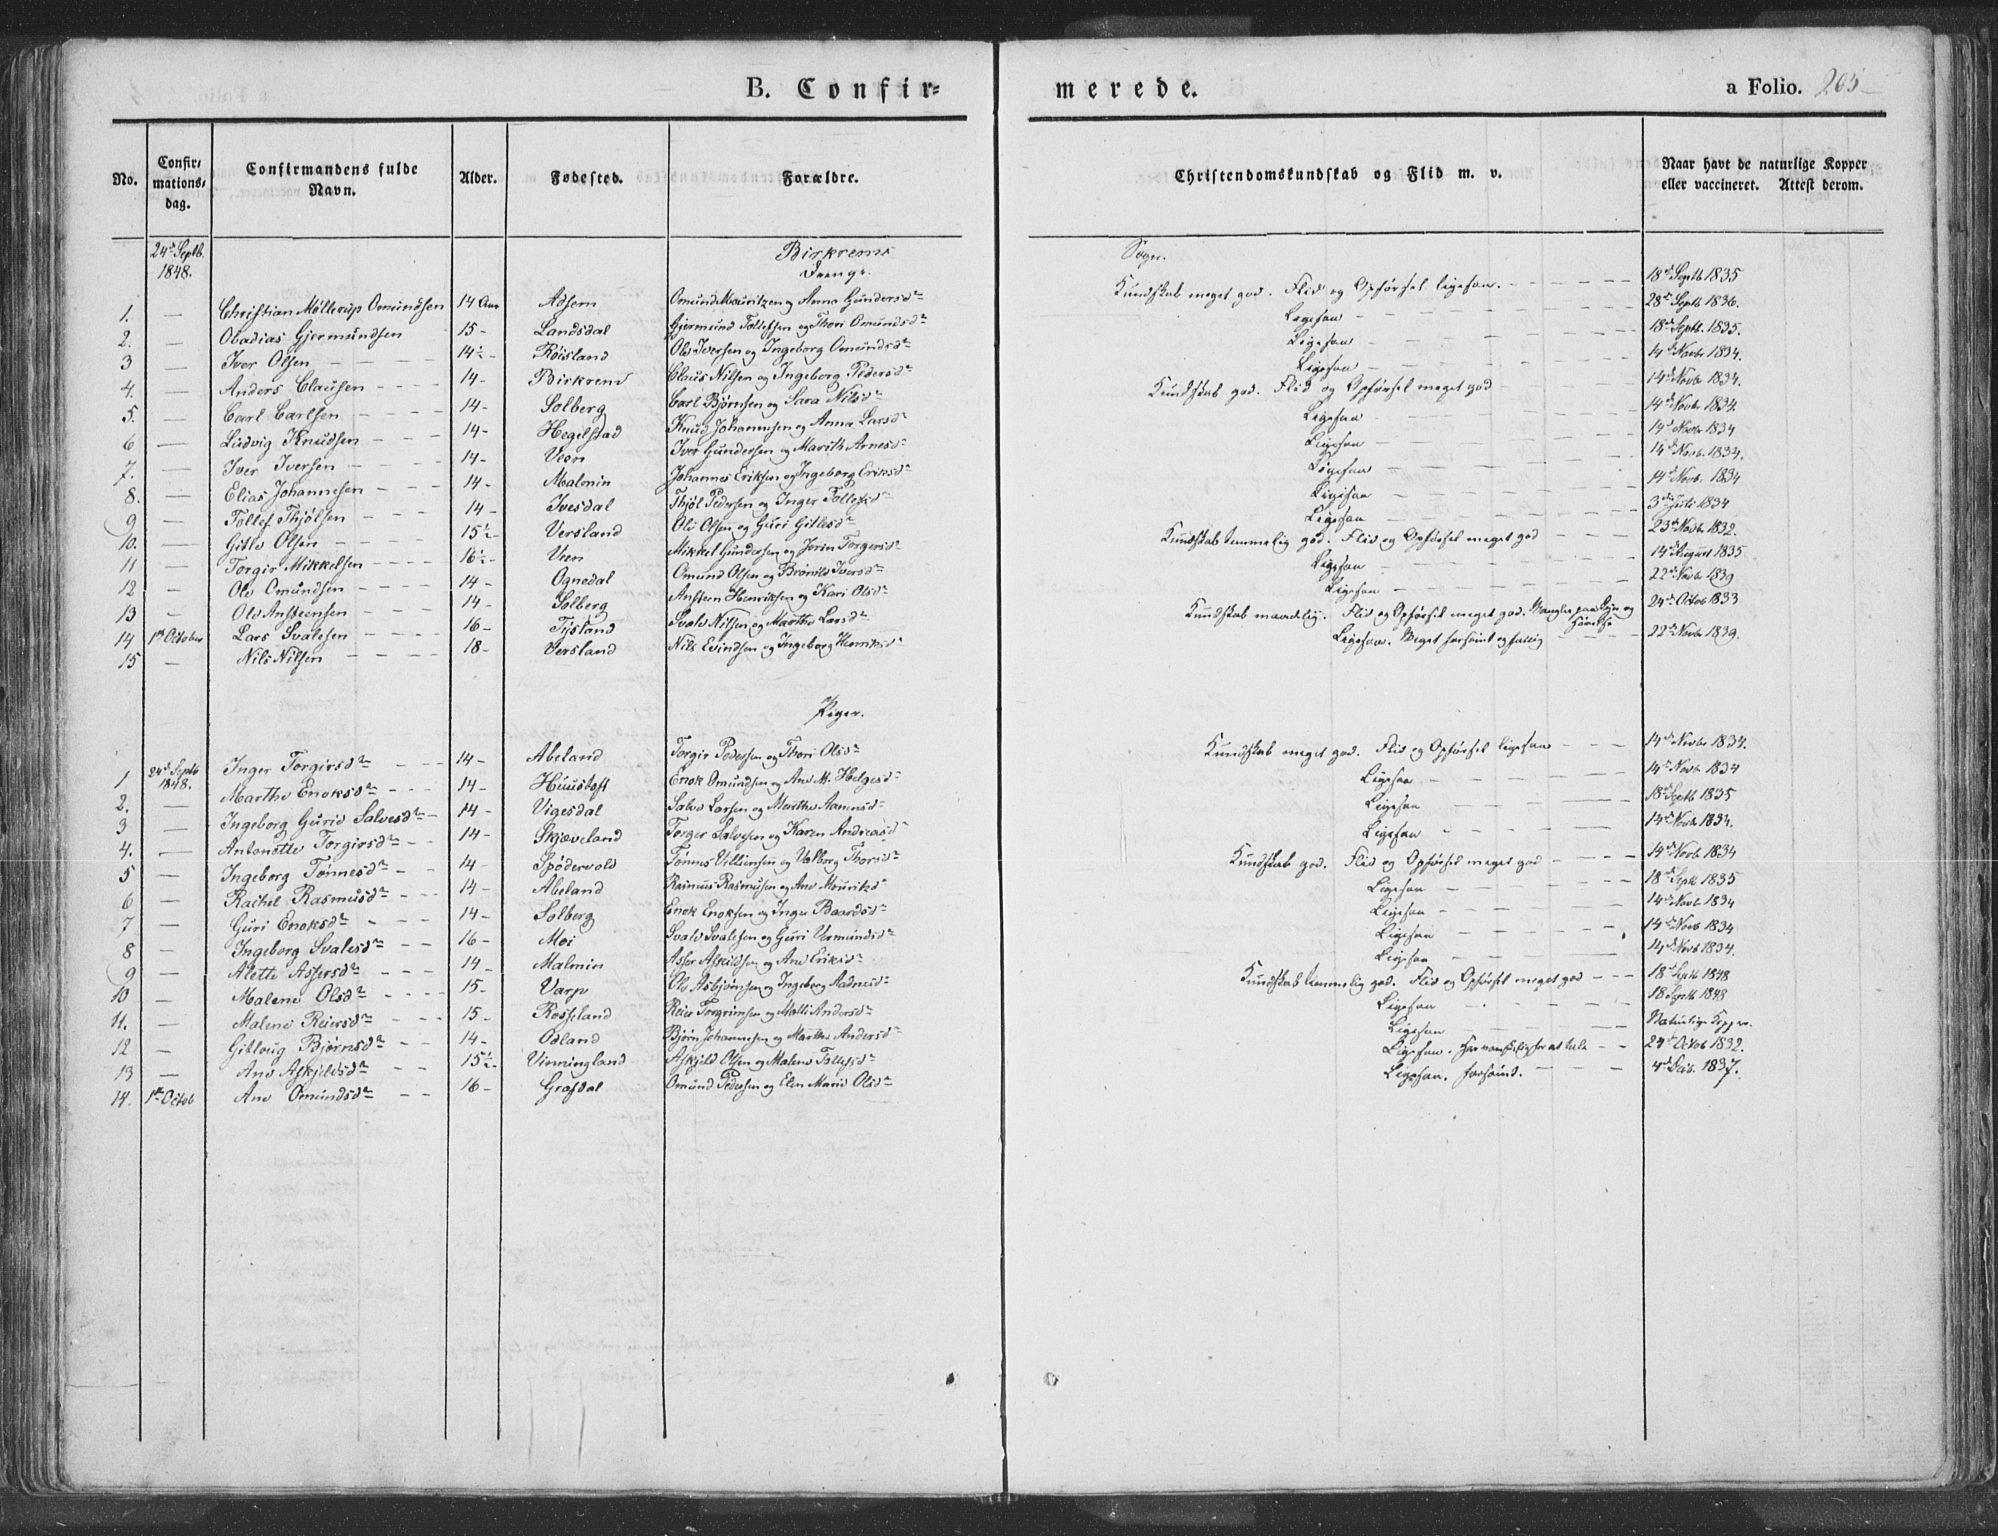 B. Confir- merede. a Folio. 205
No. Confir-mations-dag. Confirmandens fulde Navn. Alder. Fødested. Forældre. Christendomskundskab og Flid m. v. Naar havt de naturlige Kopper eller vaccineret. Attest derom.
24de Septb. 1848. Birkrems Sogn.
Drenge.
1. — Christian Møllerup Omundsen 14 Aar Adsem Omund Mauritzen og Anna Gundersdr Kundskab meget god. Flid og Opførsel ligesaa. 18de Septb 1835
2. — Obadias Gjermundsen 15 - Landsdal Gjermund Tollefsen og Thori Omundsdr Ligesaa 28de Septb 1836.
3 — Iver Olsen 14½ - Røisland Ole Iversen og Ingeborg Omundsdr Ligesaa 18de Septb. 1835.
4. — Anders Clausen 14 - Birkrem Claus Nilsen og Ingeborg Pedersdr Ligesaa 14de Novbr 1834.
5. — Carl Carlsen 14 - Solberg Carl Bjørnsen og Sara Nilsdr Kundskab god. Flid og Opførsel meget god 14de Novbr 1834.
6 — Ludvig Knudsen 14 - Hegelstad Knud Johannesen og Anna Larsdr Ligesaa 14de Novbr 1834.
7. — Iver Iversen 14 - Veen Iver Gundersen og Marith Arnesdr Ligesaa 14de Novbr 1834
8. — Elias Johannesen 14 - Malmin Johannes Eriksen og Ingeborg Eriksdr Ligesaa 14de Novb. 1834.
9 — Tollef Thjølsen 14 - Ivesdal Thjøl Pedersen og Inger Tollefsdr Ligesaa 14de Novb. 1834
10. — Gitle Olsen 15½ - Versland Ole Olsen og Guri Gitlesdr Ligesaa 3die Juli 1834
11 — Torgir Mikkelsen 16½ - Veen Mikkel Gundersen og Jorin Torgersdr Kundskab temmelig god. Flid og Opførsel meget god 23de Novbr 1832.
12 — Ole Omundsen 14 - Ognedal Omund Olsen og Brønild Iversdr Ligesaa 14de August 1835.
13 — Ole Ansteensen 14 - Solberg Ansteen Henriksen og Kari Olsdr Ligesaa 22de Novbr 1839
14 1ste October Lars Svalesen 16 - Tjsland Svale Nilsen og Marthe Larsdr Kundskab maadelig. Flid og Opførsel meget god. Mangler paa Syn og Hørelse 24de Octob 1833
15 — Nils Nilsen 18 - Versland Nils Evindsen og Ingeborg Henriksdr Ligesaa. Meget forsømt og fattig 22de Novbr 1839.
Piger.
1 24de Septb 1848. Inger Torgirsdr 14 - Abeland Torgir Pedersen og Thori Olsdr Kundskab meget god. Flid og Opførsel ligesaa 14de Novbr 1834.
2. — Marthe Enoksdr 14 - Huustoft Enok Omundsen og Ane M. Helgesdr Ligesaa 14de Novb 1834
3 — Ingeborg Gurie Salvesdr 14 - Vigesdal Salve Larsen og Marthe Aanensdr Ligesaa 18de Septb 1835
4. — Antonette Torgersdr 14 - Skjæveland Torger Salvesen og Karen Andreasdr Ligesaa 14de Novb 1834.
5 — Ingeborg Tønnesdr 14 - Spødervold Tønnes Villumsen og Valborg Thorsdr Kundskab god. Flid og Opførsel meget god 14de Novb 1834
6 — Rachel Rasmusdr 14 - Abeland Rasmus Rasmusen og Ane Mouriksdr Ligesaa 18de Septb 1835
7 — Guri Enoksdr 14 - Solberg Enok Enoksen og Inger Baardsdr Ligesaa 14de Novb. 1834
8 — Ingeborg Svalesdr 16 - Moi Svale Svalesen og Guri Vermundsdr Ligesaa 14de Novb 1834
9 — Alette Assersdr 14 - Malmin Asser Askildsen og Ane Eriksdr Ligesaa 14de Novb 1834.
10 — Malene Olsdr 15 - Varp Ole Asbjørnsen og Ingeborg Aadnesdr Kundskab temmelig god. Flid og Opførsel meget god 18de Septb 1848
11. — Malene Reiersdr 15 - Rosseland Reier Torgrimsen og Malli Andersdr Ligesaa 18 Septb 1848
12 — Gitloug Bjørnsdr 14 - Ødland Bjørn Johannesen og Marthe Andersdr Ligesaa Naturlige Kopper.
13 — Ane Askjeldsdr 15½ - Vinningland Askjeld Olsen og Malene Tollefsdr Ligesaa. Har vanskelig for at tale 24de Octob 1832.
14. 1ste Octob Ane Omundsdr 16 - Grøsdal Omund Pedersen og Elen Marie Olsdr Ligesaa. forsømt. 4de Dec. 1837.